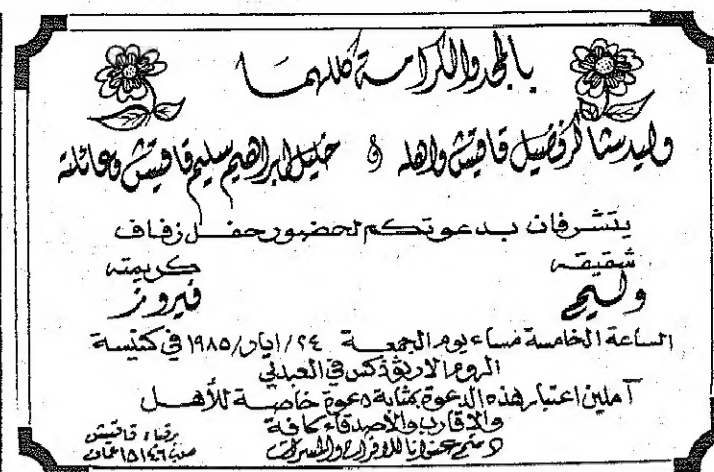 بالمجد والكرامة كللهما
وليد شاكر فضيل قاقيش واهله و خليل ابراهيم سليم قاقيش وعائلته
يتشرفان بدعوتكم لحضور حفل زفاف
شقيقه كريمته
وليم فيروز
الساعة الخامسة مساء يوم الجمعة ٢٤/ايار/١٩٨٥ في كنيسة
الروم الارثوذكس في العبدلي
آملين اعتبار هذه الدعوة بمثابة دعوة خاصة للأهل
والاقارب والأصدقاء كافة
ودمتم عنوانا للافراح والمسرات
برقياً قاقيش
ص.ب ١٥١٤٦ عمان